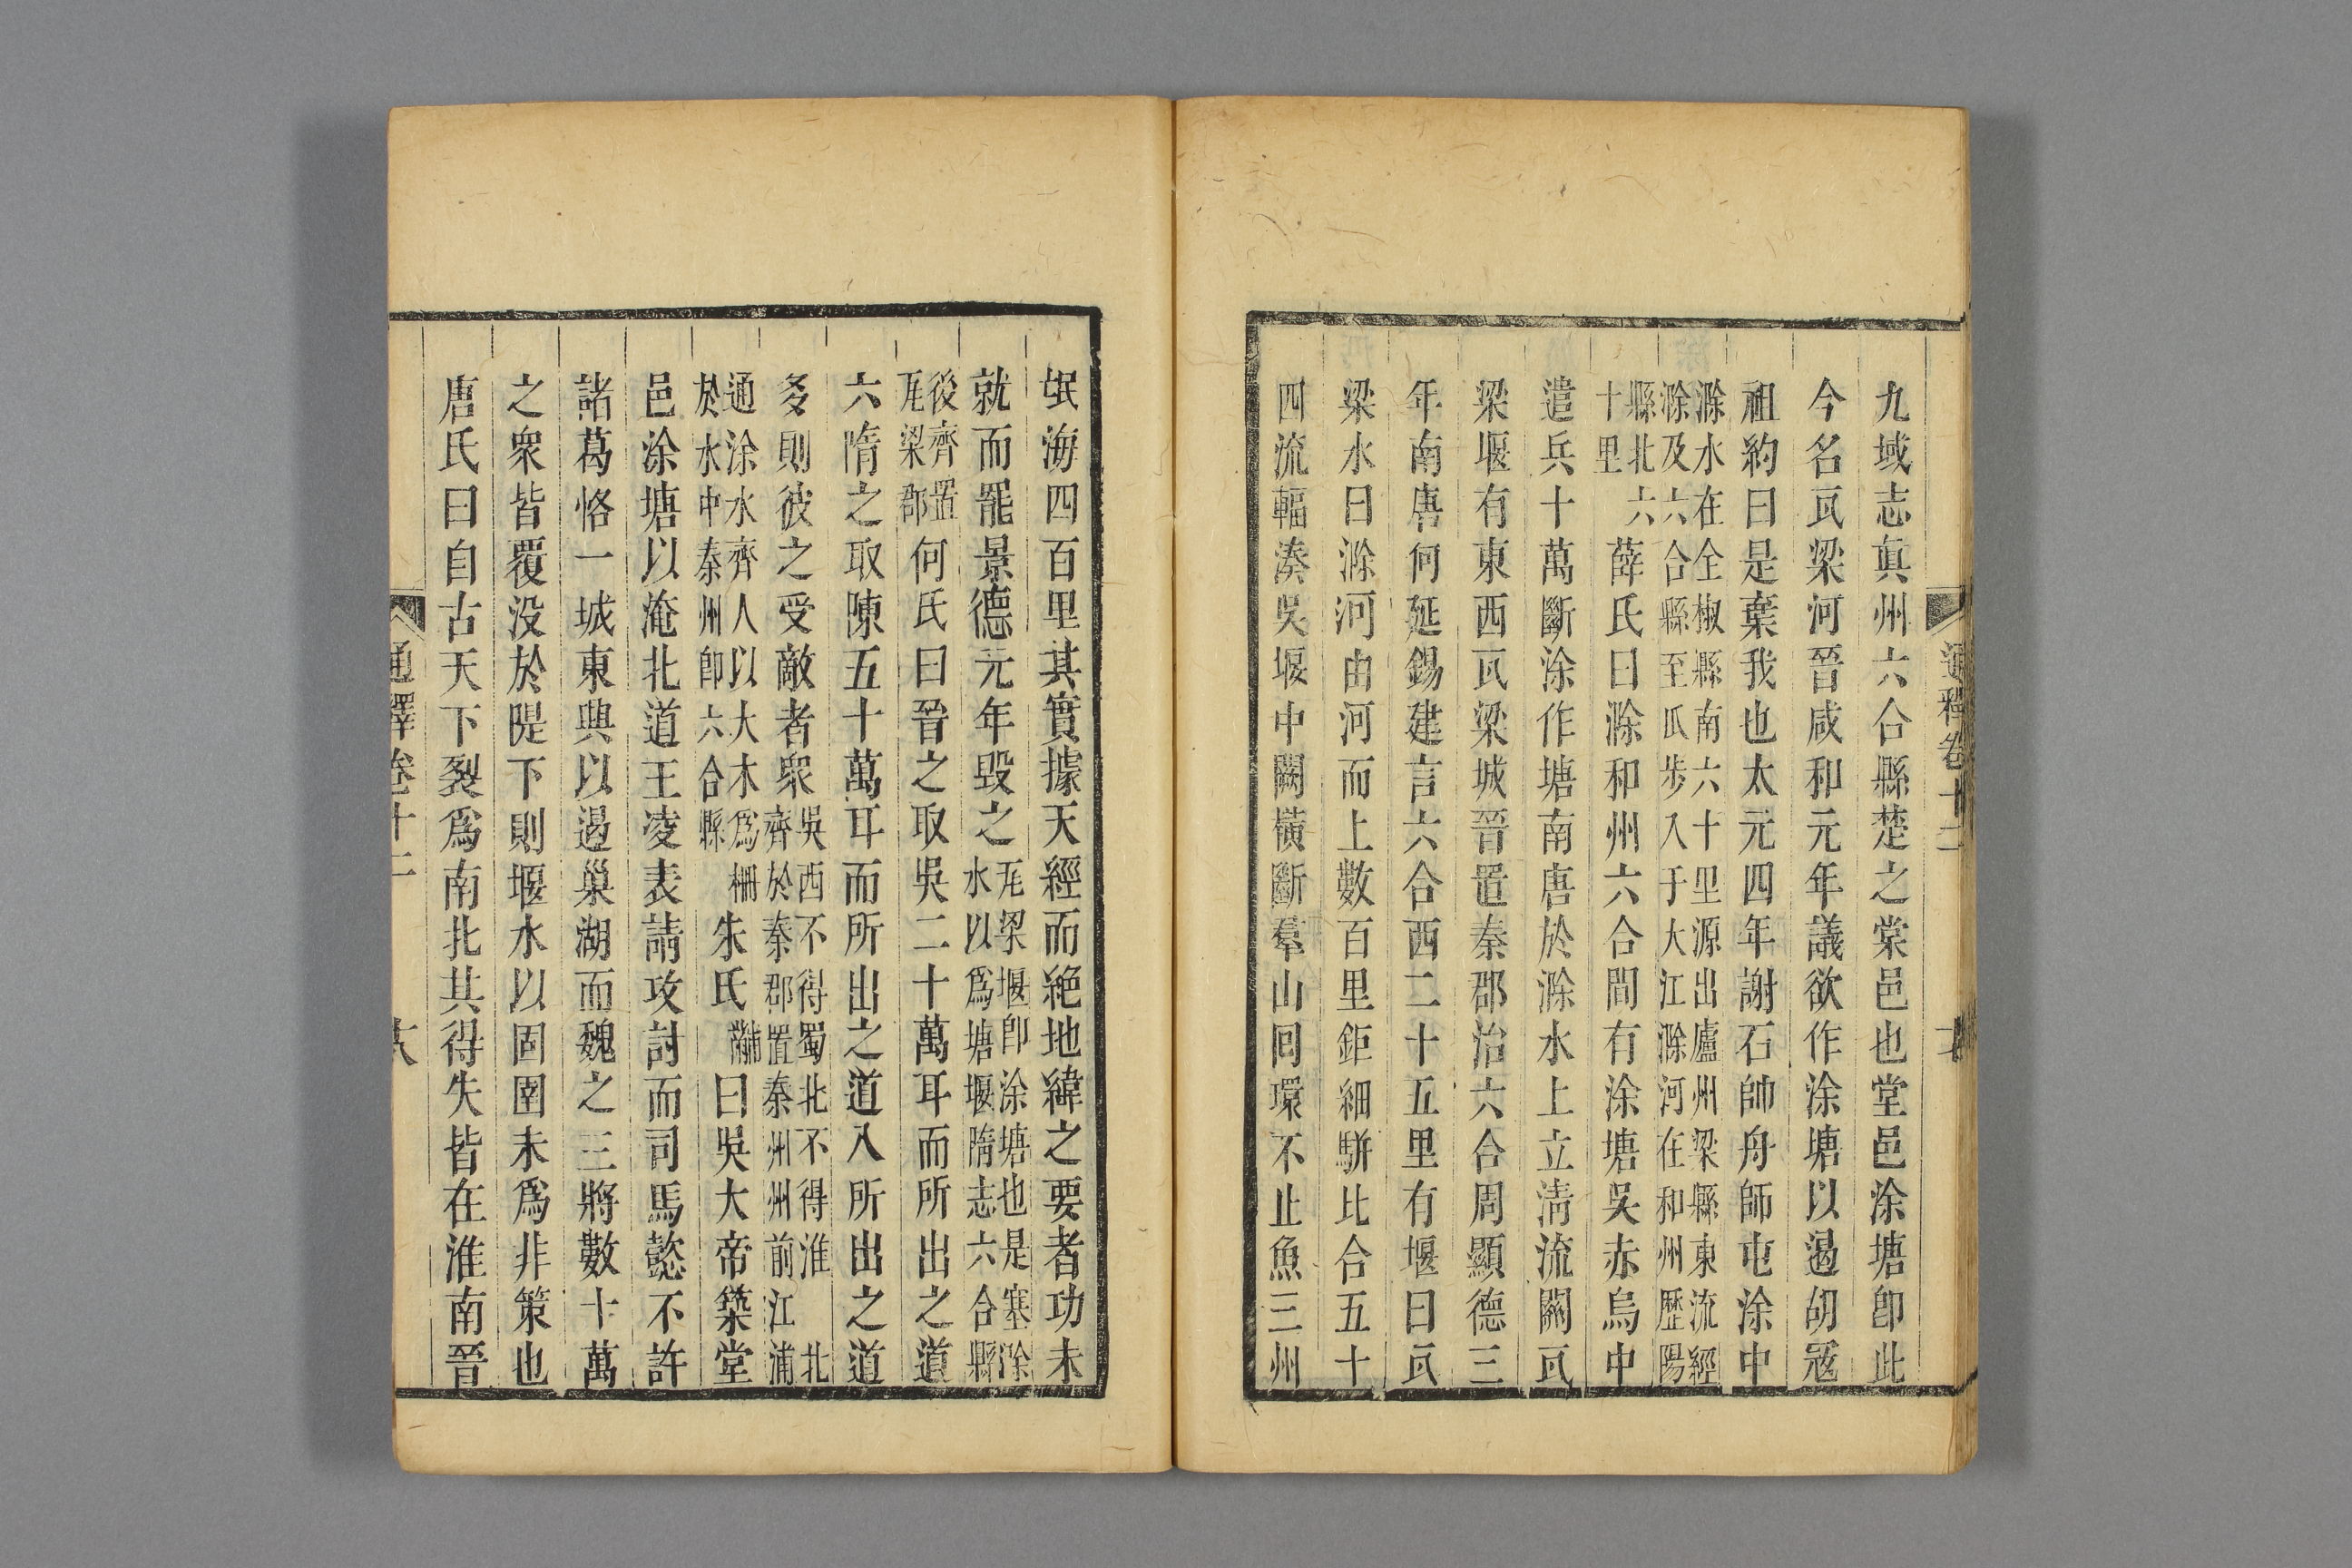 九域志眞州六合縣楚之棠邑也堂邑涂塘卽此
今名瓦梁河晉咸和元年議欲作涂塘以遏胡寇
祖約曰是棄我也太元四年謝石帥舟師屯涂中
滁水在全椒縣南六十里源出廬州梁縣東流經
滁及六合縣至瓜步入于大江滁河在和州歷陽
縣北六
十里
薛氏曰滁和州六合間有涂塘吳赤烏中
遣兵十萬斷涂作塘南唐於滁水上立淸流關瓦
梁堰有東西瓦梁城晉置秦郡治六合周顯德三
年南唐何延錫建言六合西二十五里有堰曰瓦
梁水曰滁河由河而上數百里鉅細駢比合五十
四流輻湊吳堰中闕橫斷羣山回環不止魚三州
通釋卷十二
氓海四百里其實據天經而絶地緯之要者功未
就而罷景德元年毀之
瓦梁堰卽涂塘也是塞滁
水以爲塘堰隋志六合縣
後齊置
瓦梁郡
何氏曰晉之取吳二十萬耳而所出之道
六隋之取陳五十萬耳而所出之道入所出之道
多則彼之受敵者衆
吳西不得蜀北不得淮北
齊於秦郡置秦州州前江浦
通涂水齊人以大木爲柵
於水中秦州卽六合縣
朱氏
黼
曰吳大帝築堂
邑涂塘以淹北道王凌表請攻討而司馬懿不許
諸葛恪一城東興以遏巢湖而魏之三將數十萬
之衆皆覆没於隄下則堰水以固圉未爲非策也
唐氏曰自古天下裂爲南北其得失皆在淮南晉
通釋卷十二